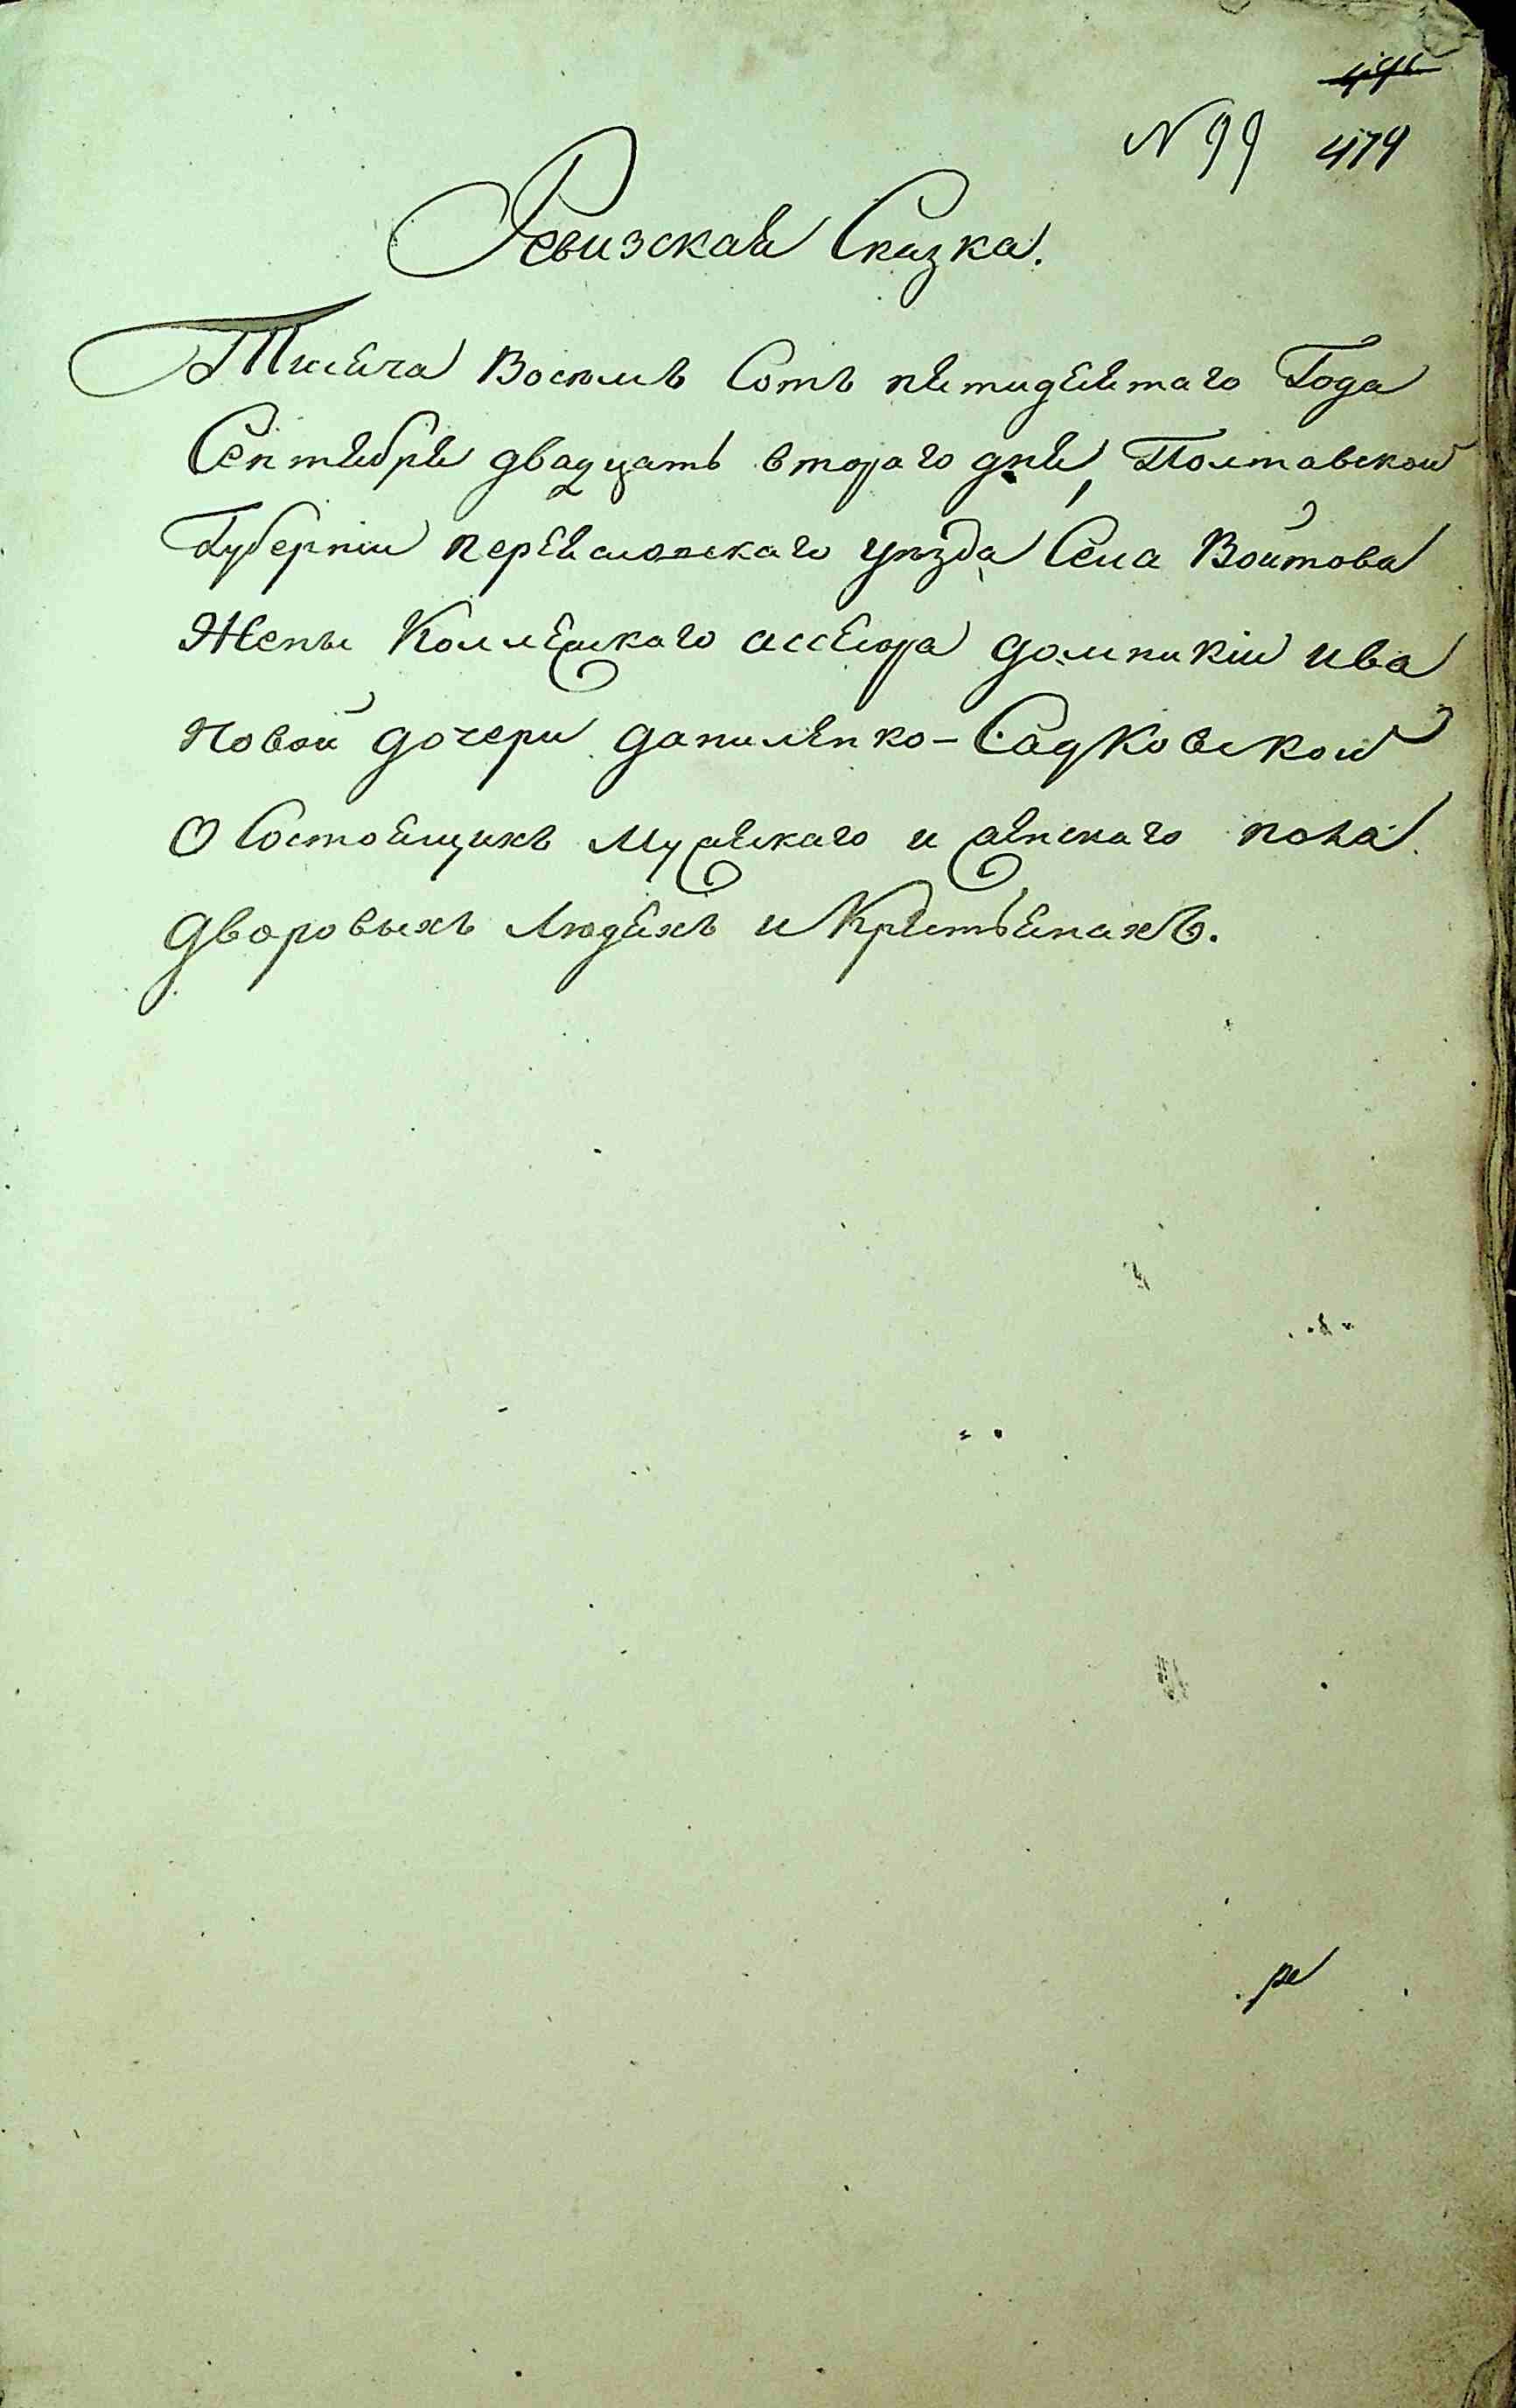 N 99 479
Ревизская Сказка.
Тисяча Восемъ Сотъ пятидесятаго Года
Сентября двадцать втораго дня, Полтавской
Губерніи переясловскаго уѣзда Села Войтова
Жены Коллежскаго ассесора домникіи ива
новой дочери даниленко-Садковской
О Состоящихъ мужескаго и женскаго пола
дворовыхъ людяхъ и Крестьянахъ.
ре